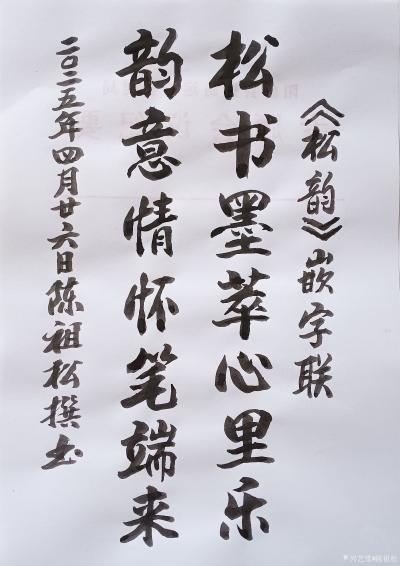 《松韵》嵌字联
松书墨萃心里乐
韵意情怀笔端来
二〇二五年四月廿六日陈祖松撰书